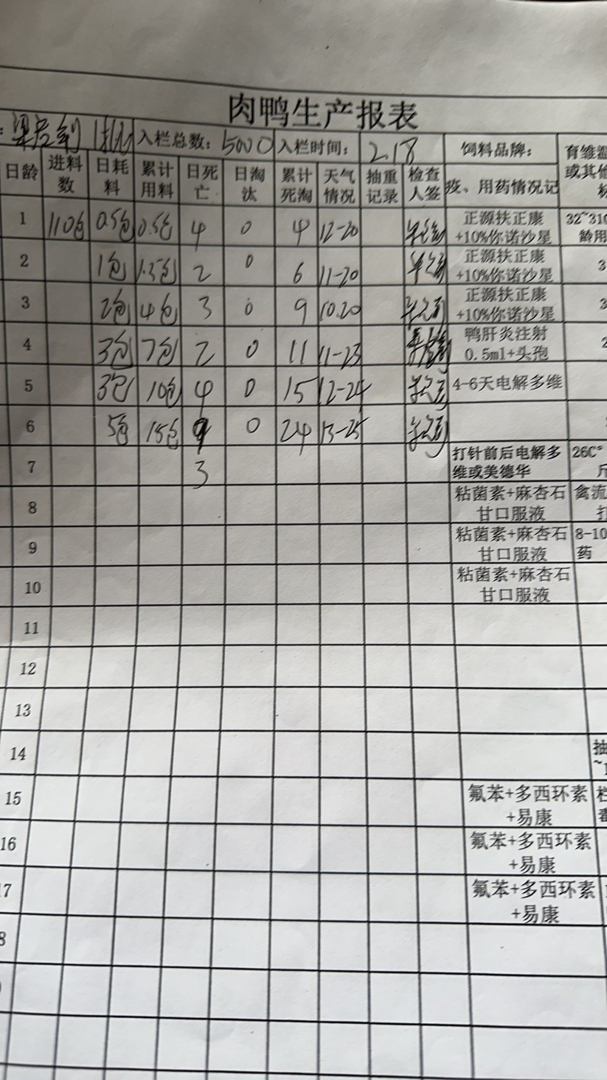 肉鸭生产报表
入栏总数: 5000 入栏时间: 2.18 饲料品牌: 育雏温
日龄 进料数 日耗料 累计用料 日死亡 日淘汰 累计死淘 天气情况 抽重记录 检查人签 疫、用药情况记 或其他 标
1 110包 0.5包 0.5包 4 0 4 12-20 正源扶正康+10%你诺沙星 32~31 龄用
2 1包 1.5包 2 0 6 11-20 正源扶正康+10%你诺沙星 3
3 2包 4包 3 0 9 10.20 正源扶正康+10%你诺沙星 3
4 3包 7包 2 0 11 11-23 鸭肝炎注射0.5ml+头孢 2
5 3包 10包 4 0 15 12-24 4-6天电解多维
6 5包 15包 9 0 24 13-25
7 3 打针前后电解多维或美德华 26C°
8 粘菌素+麻杏石甘口服液 禽流 打
9 粘菌素+麻杏石甘口服液 8-10 药
10 粘菌素+麻杏石甘口服液
11
12
13
14 抽
15 氟苯+多西环素+易康
16 氟苯+多西环素+易康
7 氟苯+多西环素+易康
8